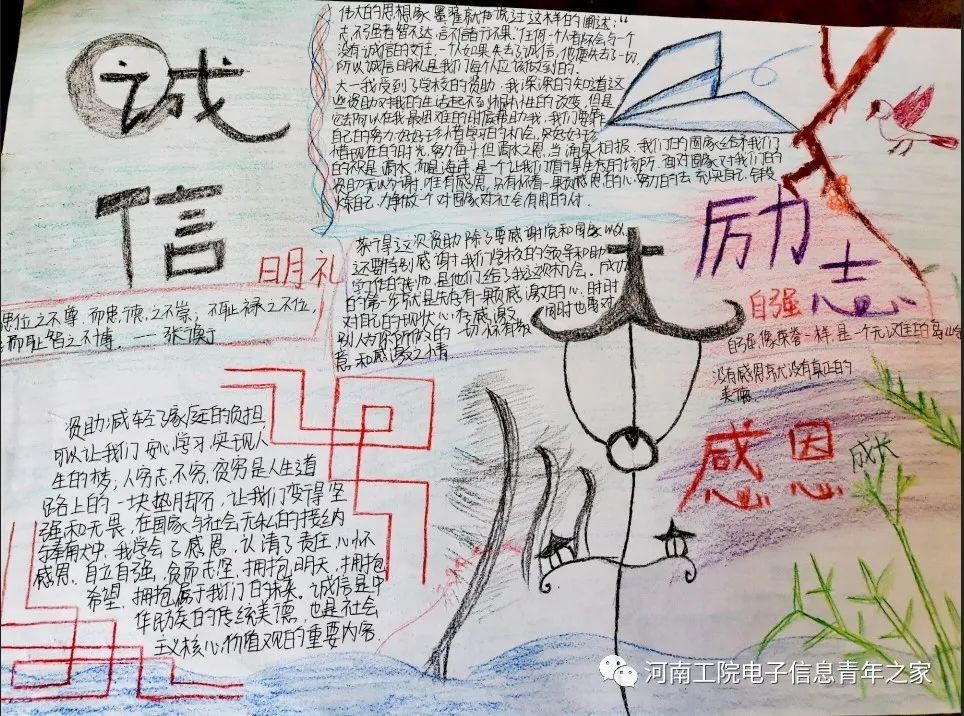 诚
信
明礼
伟大的思想家墨翟就曾说过这样的阐述:“
志不强者智不达,言不信者行不果。任何一个人都不会与一个
没有诚信的人交往,一个人如果失去了诚信,他便失去了一切
所以诚信明礼是我们每个人应该做到的。
大一我受到了学校的资助,我深深的知道这
些资助对我的生活起不到啊性的改变,但是
它却可以在我最困难的时候帮助我,我们要靠
自己的努力好好珍惜学习的机会,更好好珍
惜现在的时光,努力奋斗但滴水之恩,当涌泉相报,我们的国家给予我们
的不仅是滴水,而是海洋,是一个让我们值得
面对国家对我们的
资助无以为谢,唯有感恩,只有怀着一颗感恩的心,努力的去充实自己,
炼自己,力争做一个对国家对社会有用的人才.
励
志
自强
自强像荣誉一样,是一个无
没有感恩就没有真正的
美德
感恩
成长
君子不患位之不尊,而患德之不崇;不耻禄之不位,
而耻智之不博. ——张衡
这次资助除了要感谢党和国家以外
还要特别感谢于我们学校的领导和助
工作的老师,是他们给了我这次机会。成功
的第一步就是先存有一颗感激的心,时时
对自己的现状心存感激,同时也要对
别人为你所做的一切怀有敬
意和感激之情
资助减轻了家庭的负担
可以让我们安心学习,实现人
生的梦,人穷志不穷,贫穷是人生道
路上的一块垫脚石,让我们变得坚
强和无畏,在国家与社会无私的接纳
与奉献中,我学会了感恩,认清了责任,心怀
感恩,自立自强,贫而志坚,拥抱明天,拥抱
希望,拥抱属于我们的未来。诚信是中
华民族的传统美德,也是社会
主义核心价值观的重要内容.
河南工院电子信息青年之家